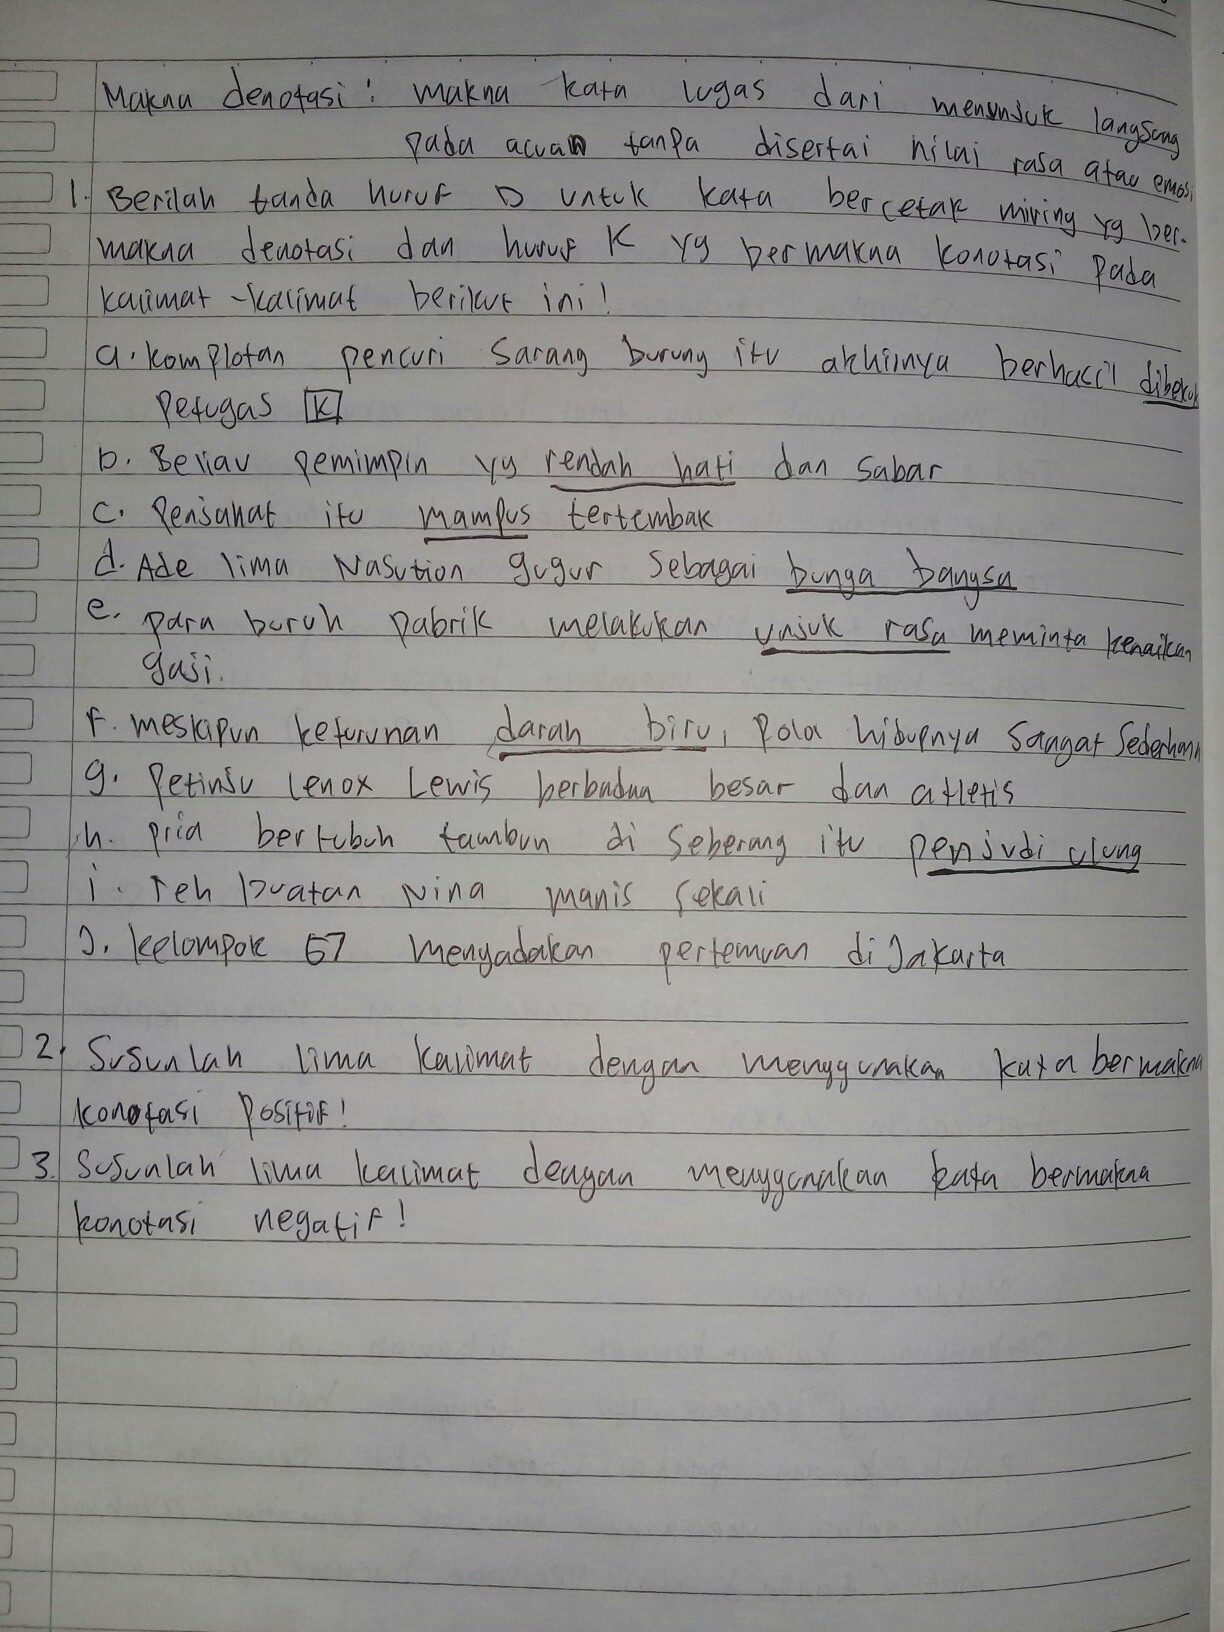 Makna denotasi : makna kata lugas dari menunjuk langsung
pada acuan tanpa disertai nilai rasa atau emosi
1. Berilah tanda huruf D untuk kata bercetak miring yg ber-
makna denotasi dan huruf K yg bermakna konotasi pada
kalimat-kalimat berikut ini!
a. komplotan pencuri sarang burung itu akhirnya berhasil dibekuk
petugas K
b. Beliau pemimpin yg rendah hati dan sabar
c. Penjahat itu mampus tertembak
d. Ade lima Nasution gugur sebagai bunga bangsa
e. para buruh pabrik melakukan unjuk rasa meminta kenaikan
gaji.
f. meskipun keturunan darah biru, pola hidupnya sangat sederhana
g. Petinju Lenox Lewis berbadan besar dan atletis
h. pria bertubuh tambun di seberang itu penjudi ulung
i. Teh buatan Nina manis sekali
J. kelompok 57 mengadakan pertemuan di Jakarta
2. Susunlah lima kalimat dengan menggunakan kata bermakna
konotasi positif!
3. Susunlah lima kalimat dengan menggunakan kata bermakna
konotasi negatif!